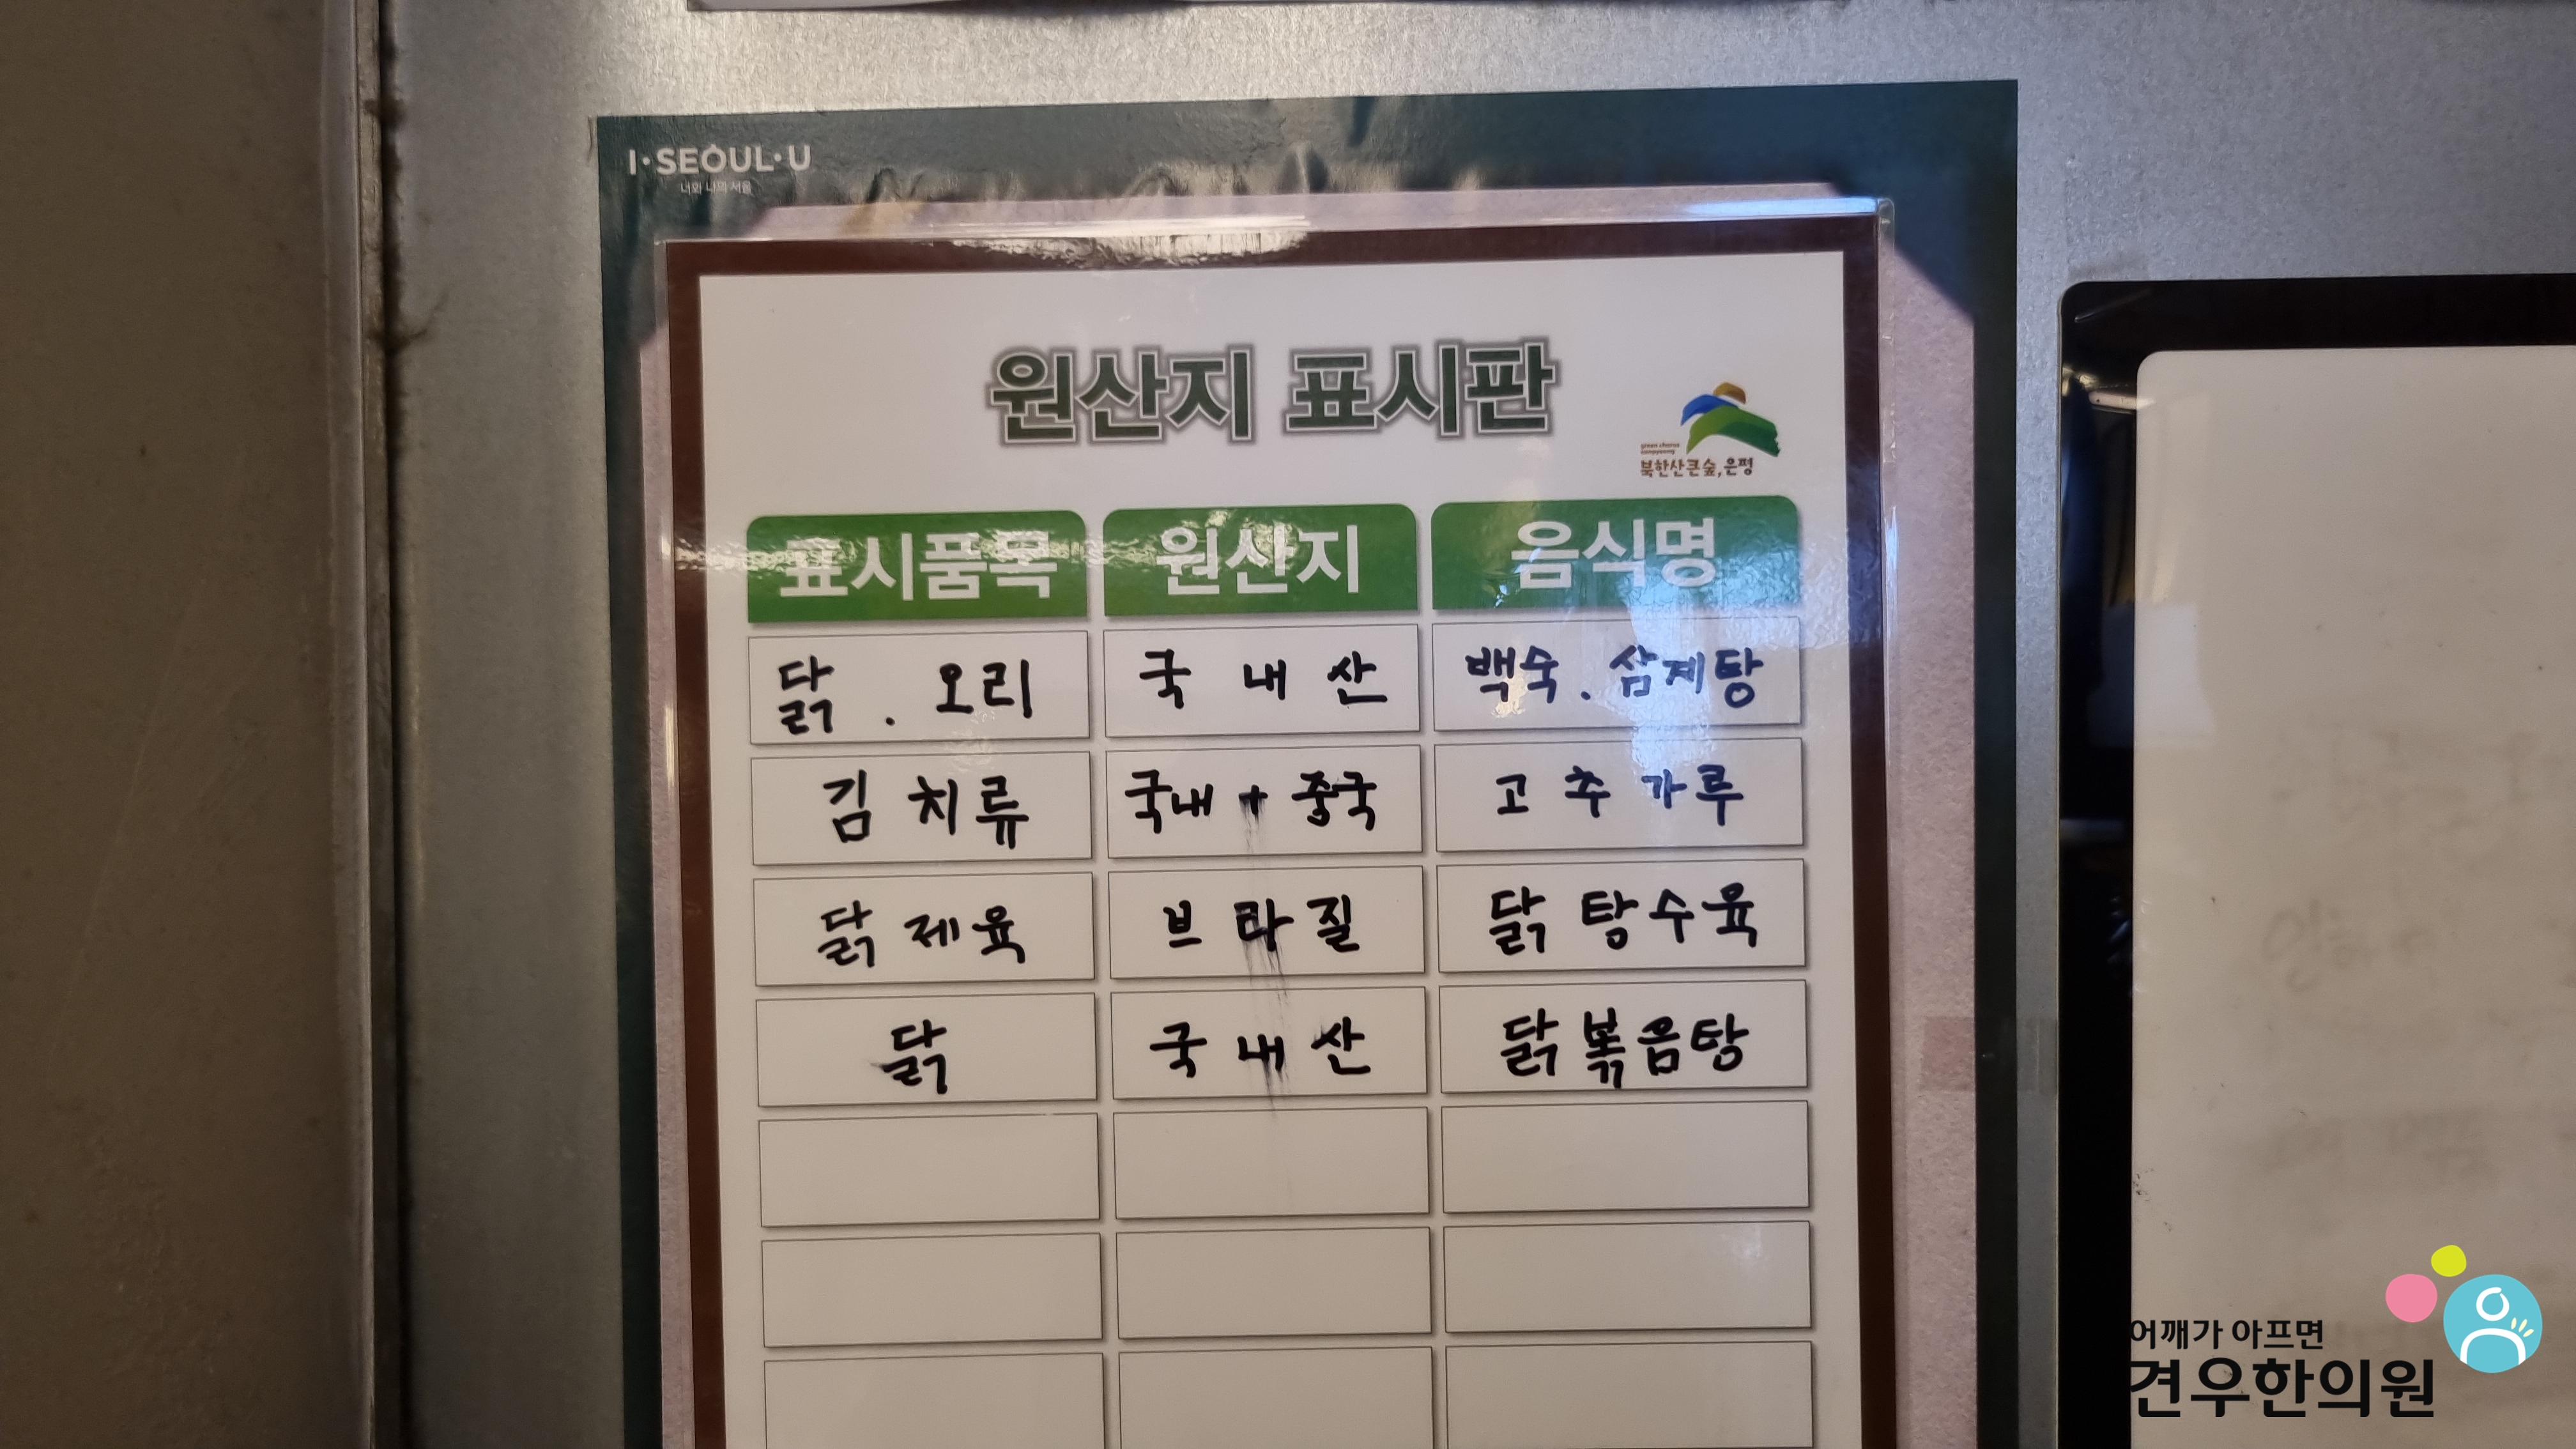 I·SEOUL·U
너와 나의 서울
원산지 표시판
북한산큰숲,은평
표시품목 원산지 음식명
닭 . 오리 국 내 산 백숙 . 삼계탕
김 치류 국내 + 중국 고 추 가루
닭 제육 브 라 질 닭 탕수육
닭 국 내 산 닭볶음탕
어깨가 아프면
견우한의원